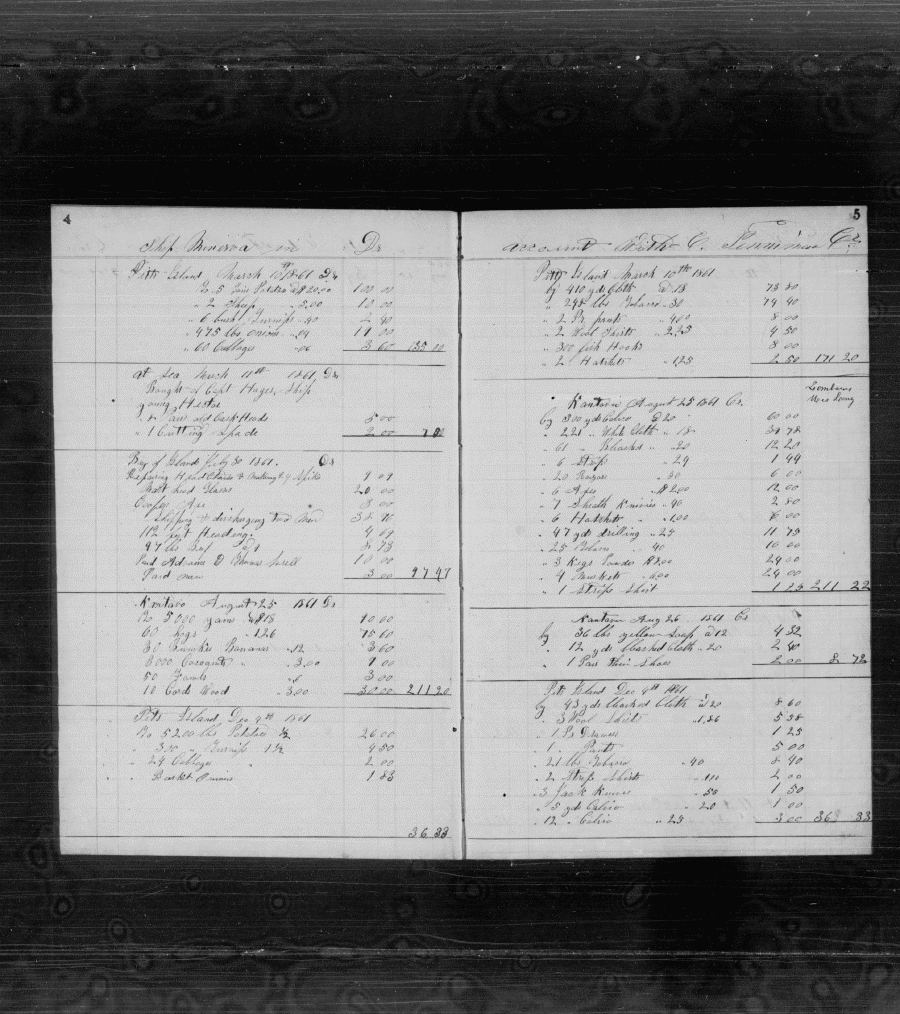 4
Ship Minerva in Dr
Pitts Island March 10th 1861 Dr
To 5 Tons Potatoes @ $20.00 100 00
" 2 Sheep " 5.00 10 00
" 6 bush Turnips " 40 2 40
" 475 lbs onions " 04 19 00
" 60 Cabbages " 06 3 60 135 00
at Sea March 11th 1861 Dr
Bought of Capt Hager Ship
young Hector
" 4 Pair old Cask Heads 5 00
" 1 Cutting Spade 2 00 7 00
Bay of Islands July 30 1861. Dr
Repairing Head
Mast head 20 00
Coopers Axe 3 00
Shipping & discharging two men
112 feet Heading 4 09
97 lbs Beef
Paid 10 00
Paid men 3 00 97 47
Kantavo August 25 1861 Dr
To 5000 yams @ $18 90 00
60 hogs " 1.26 75 60
30 Bunches Bananas " 12 3 60
3000 Cocoanuts " 3.00 9 00
50 Fowls " 6 3 00
10 Cords Wood " 3.00 30 00 211 20
Pitts Island Dec 4th 1861
To 5200 lbs Potatoes ½ 26 00
" 300 " Turnips 1½ 4 50
" 24 Cabbages " 2 00
" Basket Onions 1 83
36 33
5
account With C.
Pitts Island March 10th 1861
by 410 yds Cloth @ 18 73 80
" 248 lbs Tobacco " 30 74 40
" 2 Pr pants " 4.00 8 00
" 2 Wool Shirts " 2.25 4 50
" 300 fish Hooks 8 00
" 2 Hatchets " 1.25 2 50 171 20
Kantavo August 25 1861 Cr.
by 300 yds Calico @ 20 60 00
" 221 " White Cloth " 18 39 78
" 61 " Bleached " " 20 12 20
" 6 " Stripe " 24 1 44
" 20 Razors " 30 6 00
" 6 Axes " $2.00 12 00
" 7 Sheath Knives " 40 2 80
" 6 Hatchets " 1.00 6 00
" 47 yds drilling " 25 11 75
" 25 " 40 10 00
" 3 Kegs Powder $8.00 24 00
" 4 Muskets " 6.00 24 00
" 1 Stripe Shirt 1 25 211 22
Kantavo Aug 26 1861 Cr
by 36 lbs yellow Soap @ 12 4 32
" 12 yds bleached Cloth " 20 2 40
" 1 Pair thin Shoes 2 00 8 72
Pitts Island Dec 4th 1861
by 43 yds bleached Cloth @ 20 8 60
" 3 Wool Shirts " 1.86 5 58
" 1 Pr Drawers 1 25
" 1 " Pants 5 00
" 21 lbs Tobacco " 40 8 40
" 2 Stripe Shirts " 1.00 2 00
" 3 Jack Knives " 50 1 50
" 5 yds Calico " 20 1 00
" 12 " Calico " 25 3 00 36 33